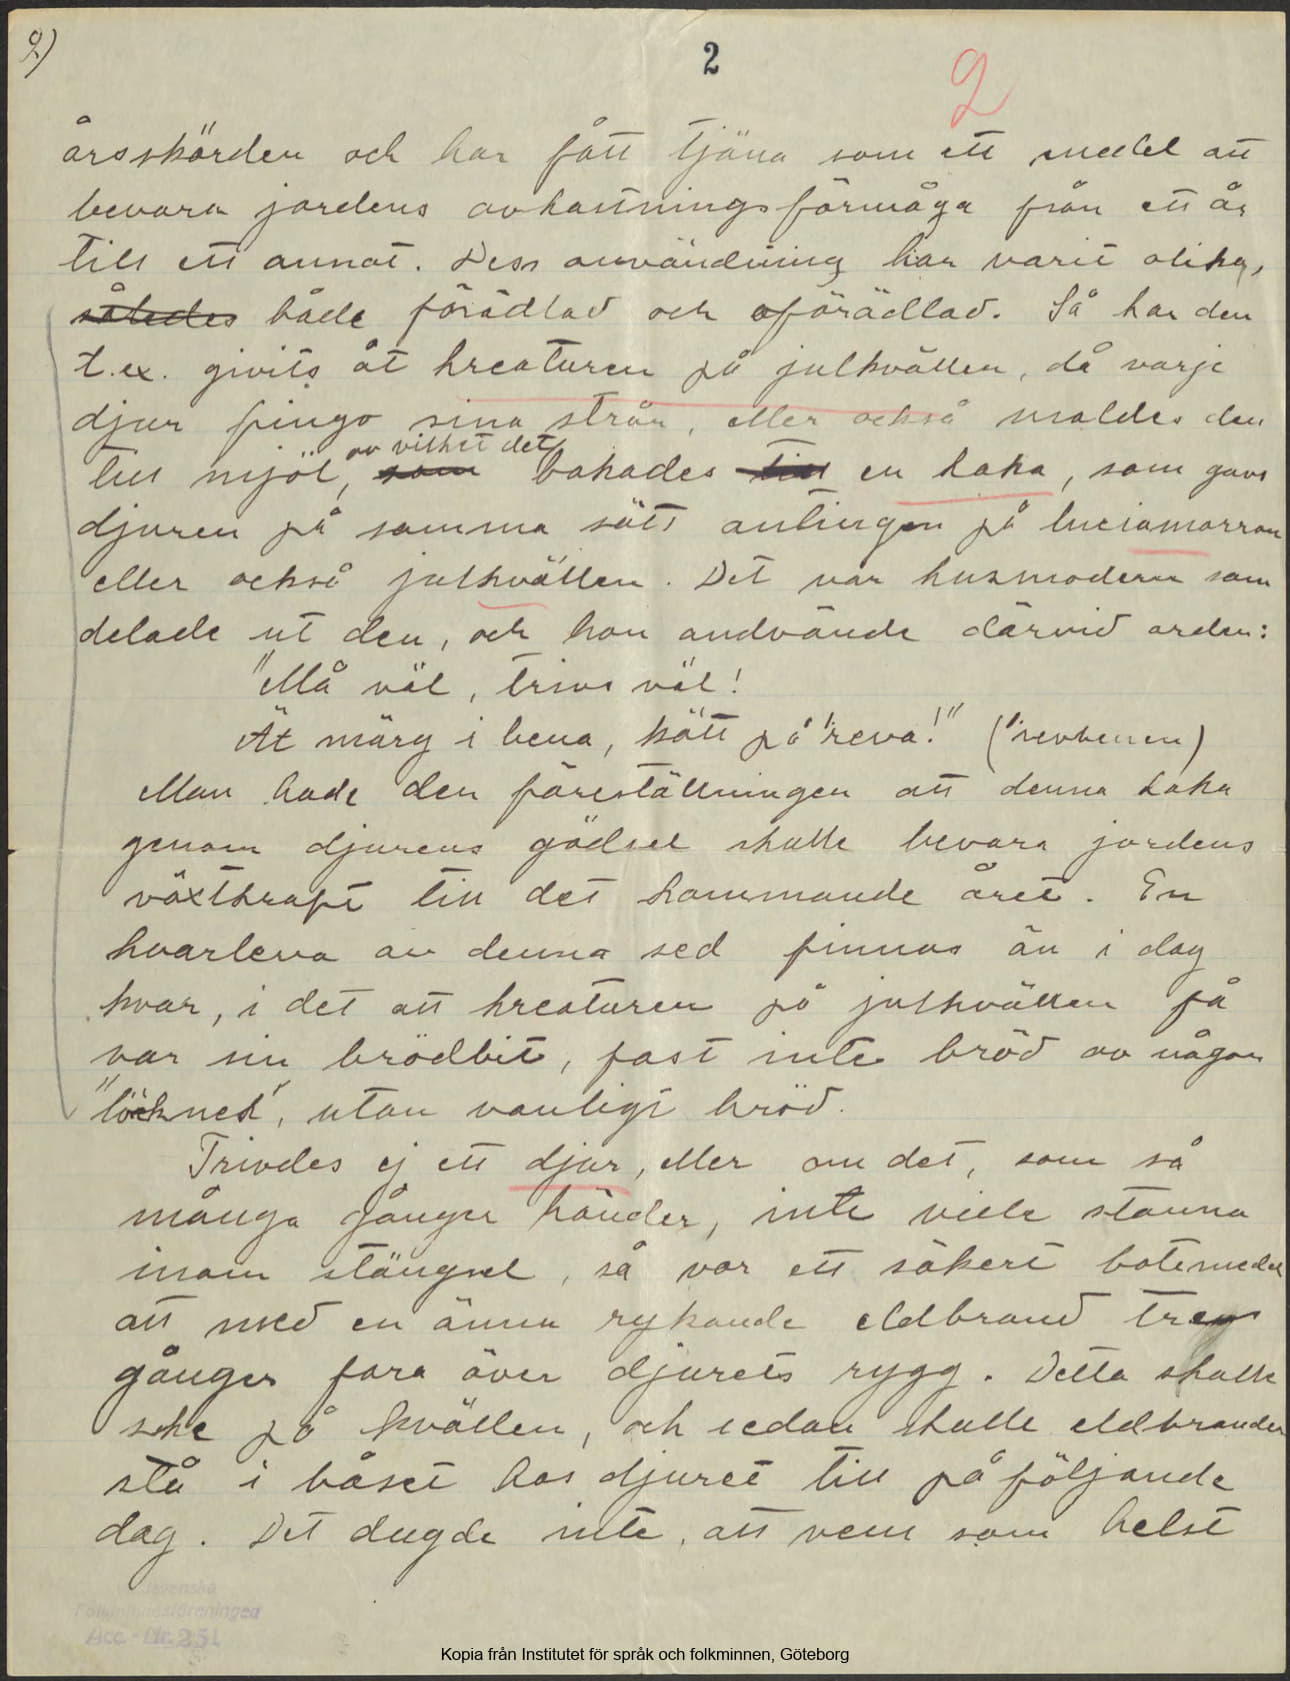 2)
2
2
årsskörden och har fått tjäna som ett medel att
bevara jordens avkastningsförmåga från ett år
till ett annat. Dess användning har varit olika,
således både förädlad och oförädlad. Så har den
t.ex. givits åt kreaturen på julkvällen, då varje
djur fingo sina strån, eller också maldes den
av vilket det
till mjöl, som bakades till en kaka, som gavs
djuren på samma sätt antingen på luciamorron
eller också julkvällen. Det var husmodern som
delade ut den, och hon andvände därvid orden:
"Må väl, trivs väl!
Ät märg i bena, kött på 'reva!" ('revbenen)
Man hade den föreställningen att denna kaka
genom djurens gödsel skulle bevara jordens
växtkraft till det kommande året. En
kvarleva av denna sed finnas än i dag
kvar, i det att kreaturen på julkvällen få
var sin brödbit, fast inte bröd av någon
"löcknek", utan vanligt bröd.
Trivdes ej ett djur, eller om det, som så
många gånger händer, inte ville stanna
inom stängsel, så var ett säkert botemedel
att med en ännu rykande eldbrand tre
gånger fara över djurets rygg. Detta skulle
ske på kvällen, och sedan skulle eldbranden
stå i båset hos djuret till påföljande
dag. Det dugde inte, att vem som helst
svenska
Folkminnesföreningen
Acc.-Nr. 251
Kopia från Institutet för språk och folkminnen, Göteborg